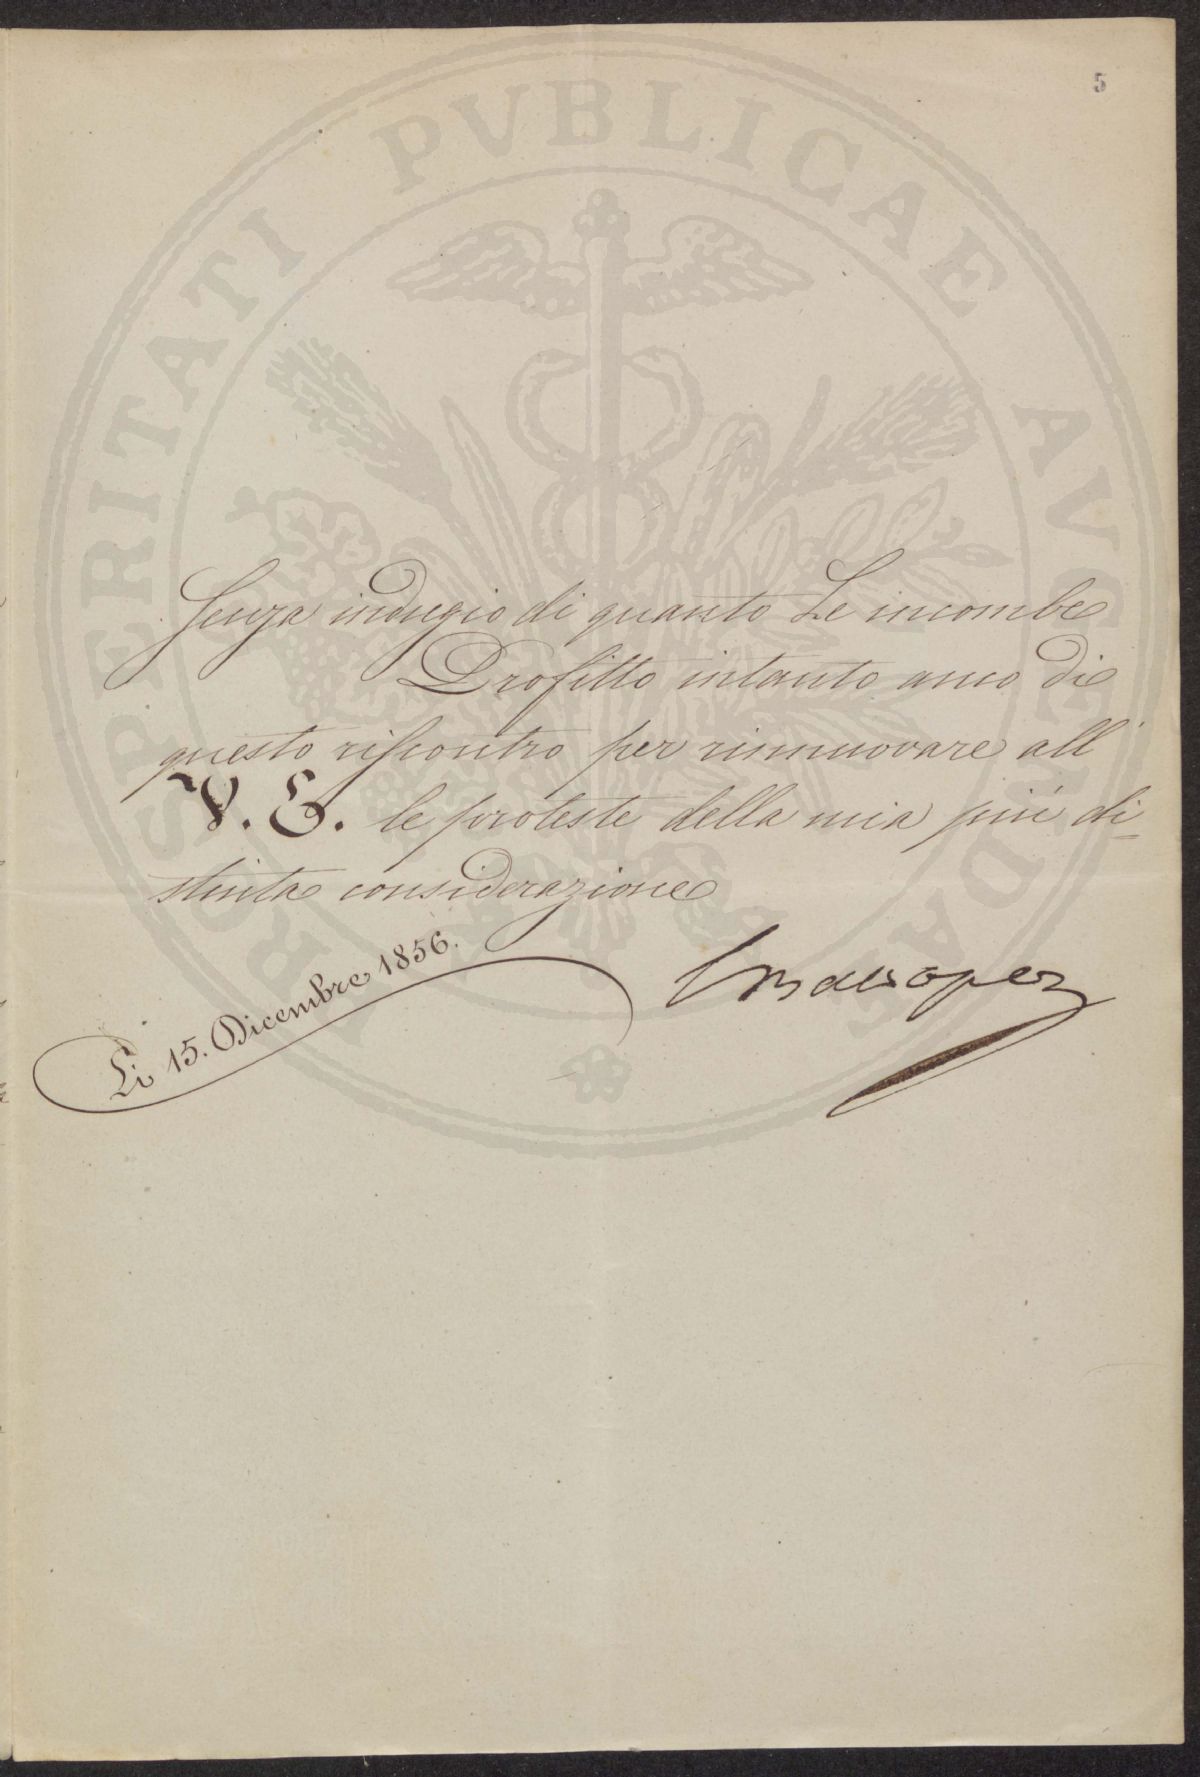 5
PROSPERITATI PVBLICAE AVGENDAE
Senza indugio di quanto Le incombe
Profitto intanto anco di
questo riscontro per rinnuovare all'
V. E. le proteste della mia più di=
stinta considerazione
Li 15. Dicembre 1856.